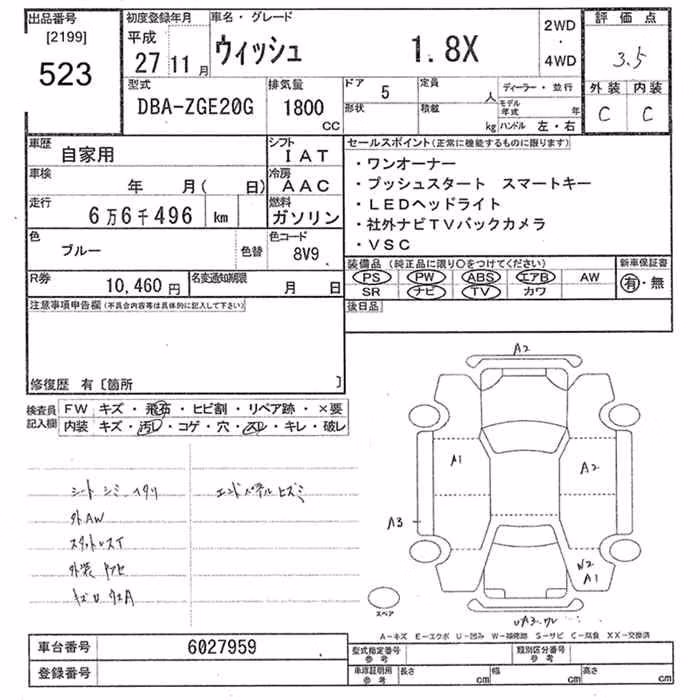 出品番号 初度登録年月 車名・グレード 2WD・4WD 評価点
[2199] 平成
523 27 11月 ウィッシュ 1.8X 3.5
型式 排気量 ドア 5 定員 人 ディーラー・並行 外装 内装
DBA-ZGE20G 1800 CC 形状 積載 kg モデル年式 年 C C
ハンドル 左・右
車歴 自家用 シフト IAT セールスポイント(正常に機能するものに限ります)
車検 年 月( 日) 冷房 AAC ・ワンオーナー
・プッシュスタート スマートキー
走行 6万6千496 km 燃料 ガソリン ・LEDヘッドライト
・社外ナビTVバックカメラ
色 ブルー 色替 色コード 8V9 ・VSC
装備品(純正品に限り○をつけてください) 新車保証書
R券 10,460円 名変通知期限 月 日 PS PW ABS エアB AW 有・無
SR ナビ TV カワ
注意事項申告欄(不具合内容等は具体的に記入して下さい) 後日品
修復歴 有〔箇所 〕
検査員 FW キズ・飛石・ヒビ割・リペア跡・×要
記入欄 内装 キズ・汚レ・コゲ・穴・スレ・キレ・破レ
シートシミ ヘタリ エンドパネルヒズミ
外AW
外装
A2
A1 A2
A3
W2
A1
スペア
A-キズ E-エクボ U-凹み W-補修跡 S-サビ C-腐食 XX-交換済
車台番号 6027959 型式指定番号 参考 類別区分番号 参考
登録番号 車庫証明用 参考 長さ cm 幅 cm 高さ cm